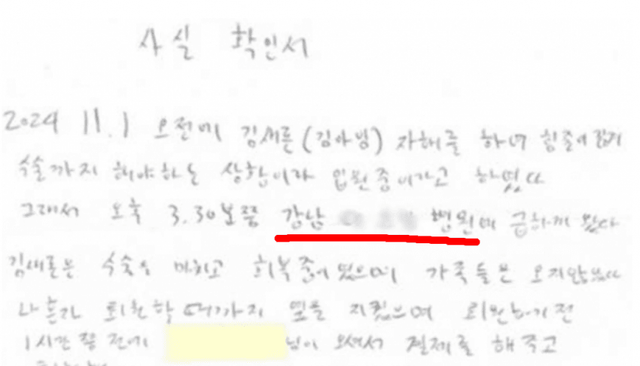 사실 확인서
2024 11.1 오전에 김새론(김아임) 자해를 하여 힘줄이 끊겨
수술까지 해야하는 상황이라 입원중이라고 하였다
그래서 오후 3.30분쯤 강남 병원에 급하게 왔다
김새론은 수술을 마치고 회복중이었으며 가족들은 오지않았다
나 혼자 퇴원할때까지 옆을 지켰으며 퇴원하기전
1시간 쯤 전에 님이 오셔서 결제를 해주고